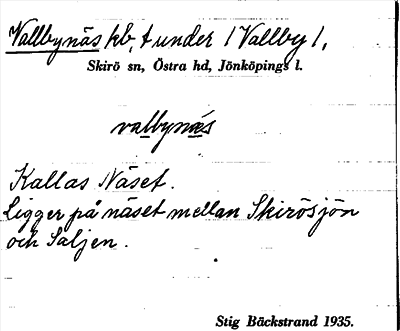 Vallbynäs hb, t under 1 Vallby 1,
Skirö sn, Östra hd, Jönköpings l.
valbynä́s
Kallas Näset.
Ligger på näset mellan Skirösjön
och Saljen.
Stig Bäckstrand 1935.